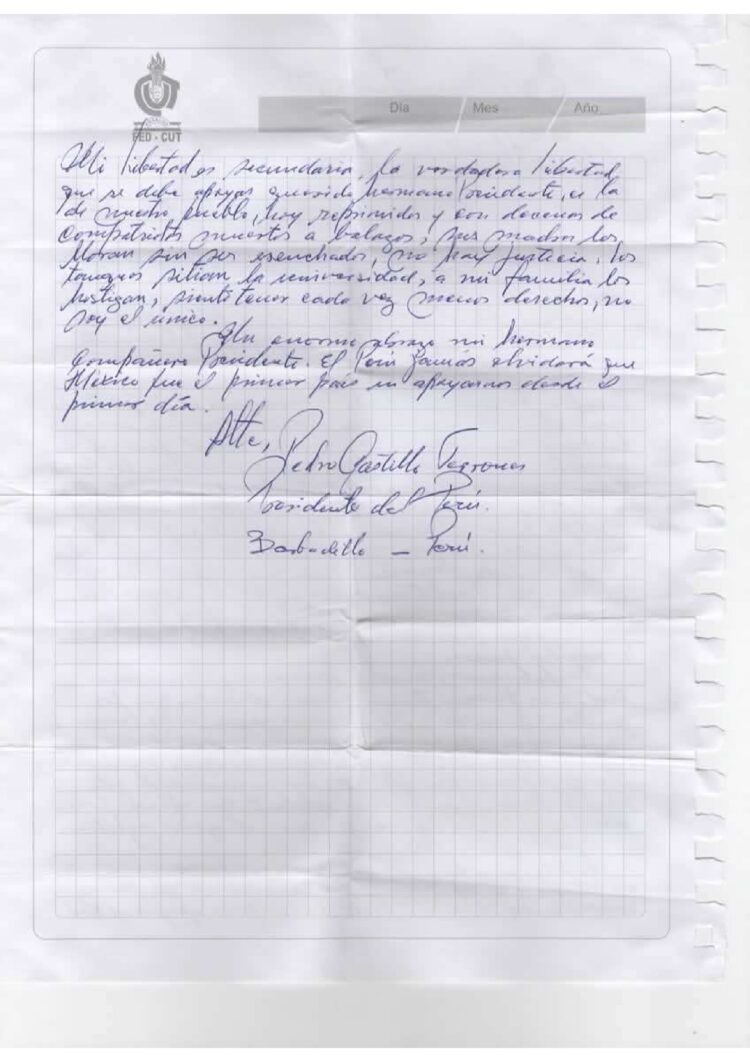 FED - CUT
Día / Mes / Año
Mi libertad es secundaria, la verdadera libertad
que se debe apoyar querido hermano Presidente, es la
de nuestro pueblo, hoy reprimidos y con decenas de
compatriotas muertos a balazos, sus madres los
lloran sin ser escuchados, no hay justicia, los
tanques sitian la universidad, a mi familia los
hostigan, siento tener cada vez menos derechos, no
soy el único.
Un enorme abrazo mi hermano
Compañero Presidente. El Perú jamás olvidará que
México fue el primer país en apoyarnos desde el
primer día.
Atte,
Pedro Castillo Terrones
Presidente del Perú.
Barbadillo - Perú.